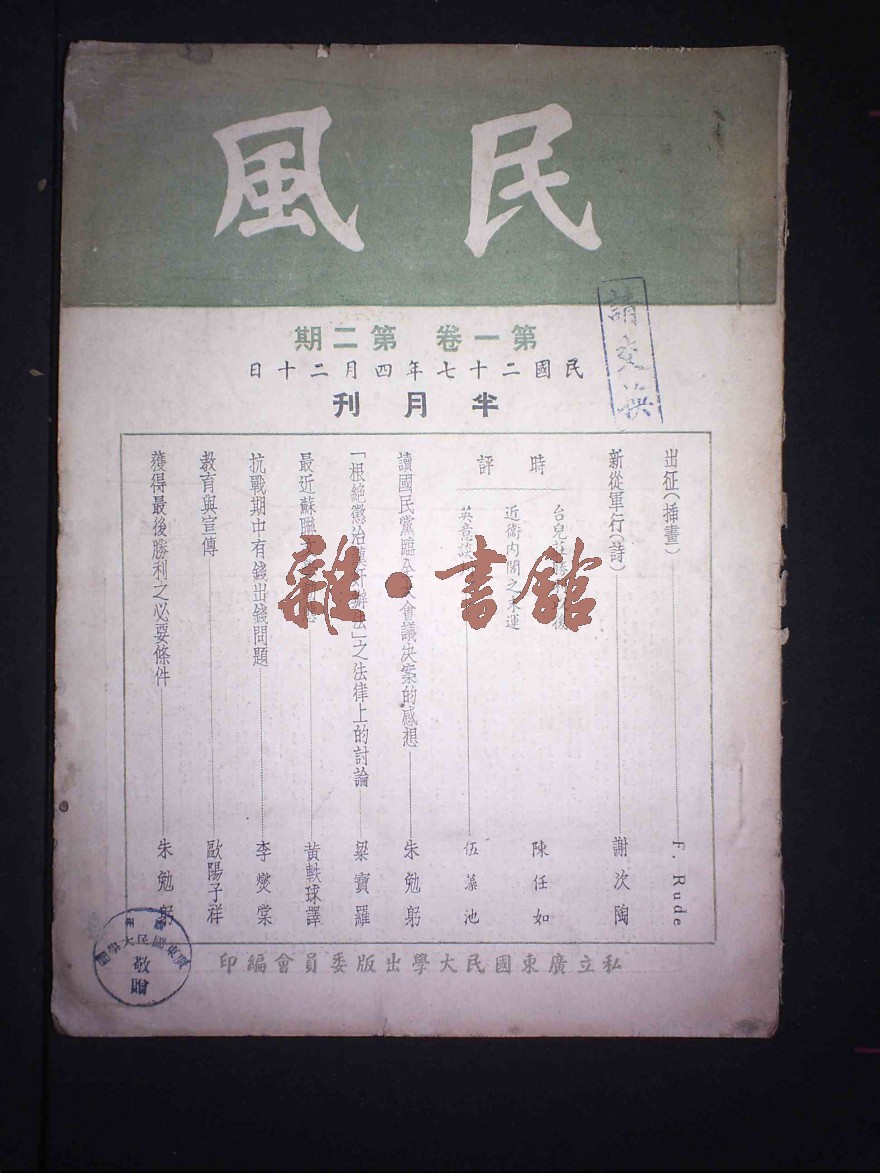 民風
第一卷 第二期
民國二十七年四月二十日
半月刊
請交換
出征(插畫) F. Rude
新從軍行(詩) 謝次陶
時評
台兒莊 後
近衛內閣之末運 陳任如
英意談 伍藻池
讀國民黨臨全大會議決案的感想 朱勉躬
「根絕懲治漢奸辦法」之法律上的討論 梁寶羅
最近蘇聯 黃軼球譯
抗戰期中有錢出錢問題 李爕棠
教育與宣傳 歐陽子祥
獲得最後勝利之必要條件 朱勉躬
私立廣東國民大學出版委員會編印
廣東國民大學圖
敬贈
雜·書館